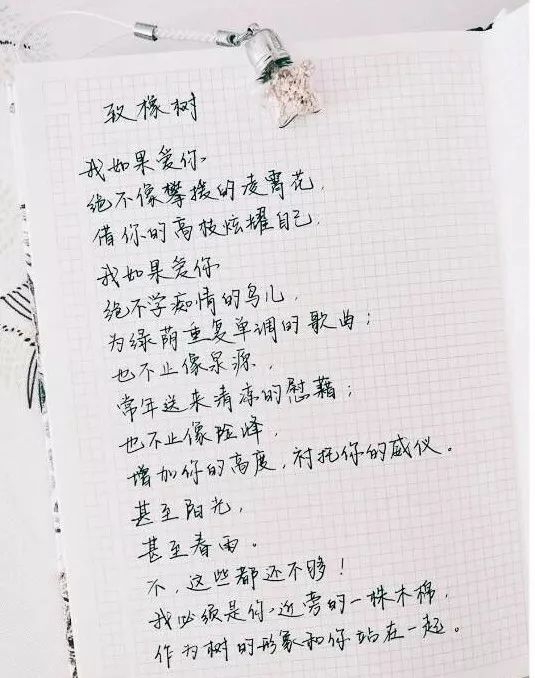 致橡树
我如果爱你
绝不像攀援的凌霄花,
借你的高枝炫耀自己,
我如果爱你
绝不学痴情的鸟儿,
为绿荫重复单调的歌曲;
也不止像泉源,
常年送来清凉的慰藉;
也不止像险峰,
增加你的高度,衬托你的威仪。
甚至阳光,
甚至春雨。
不,这些都还不够!
我必须是你近旁的一株木棉,
作为树的形象和你站在一起。